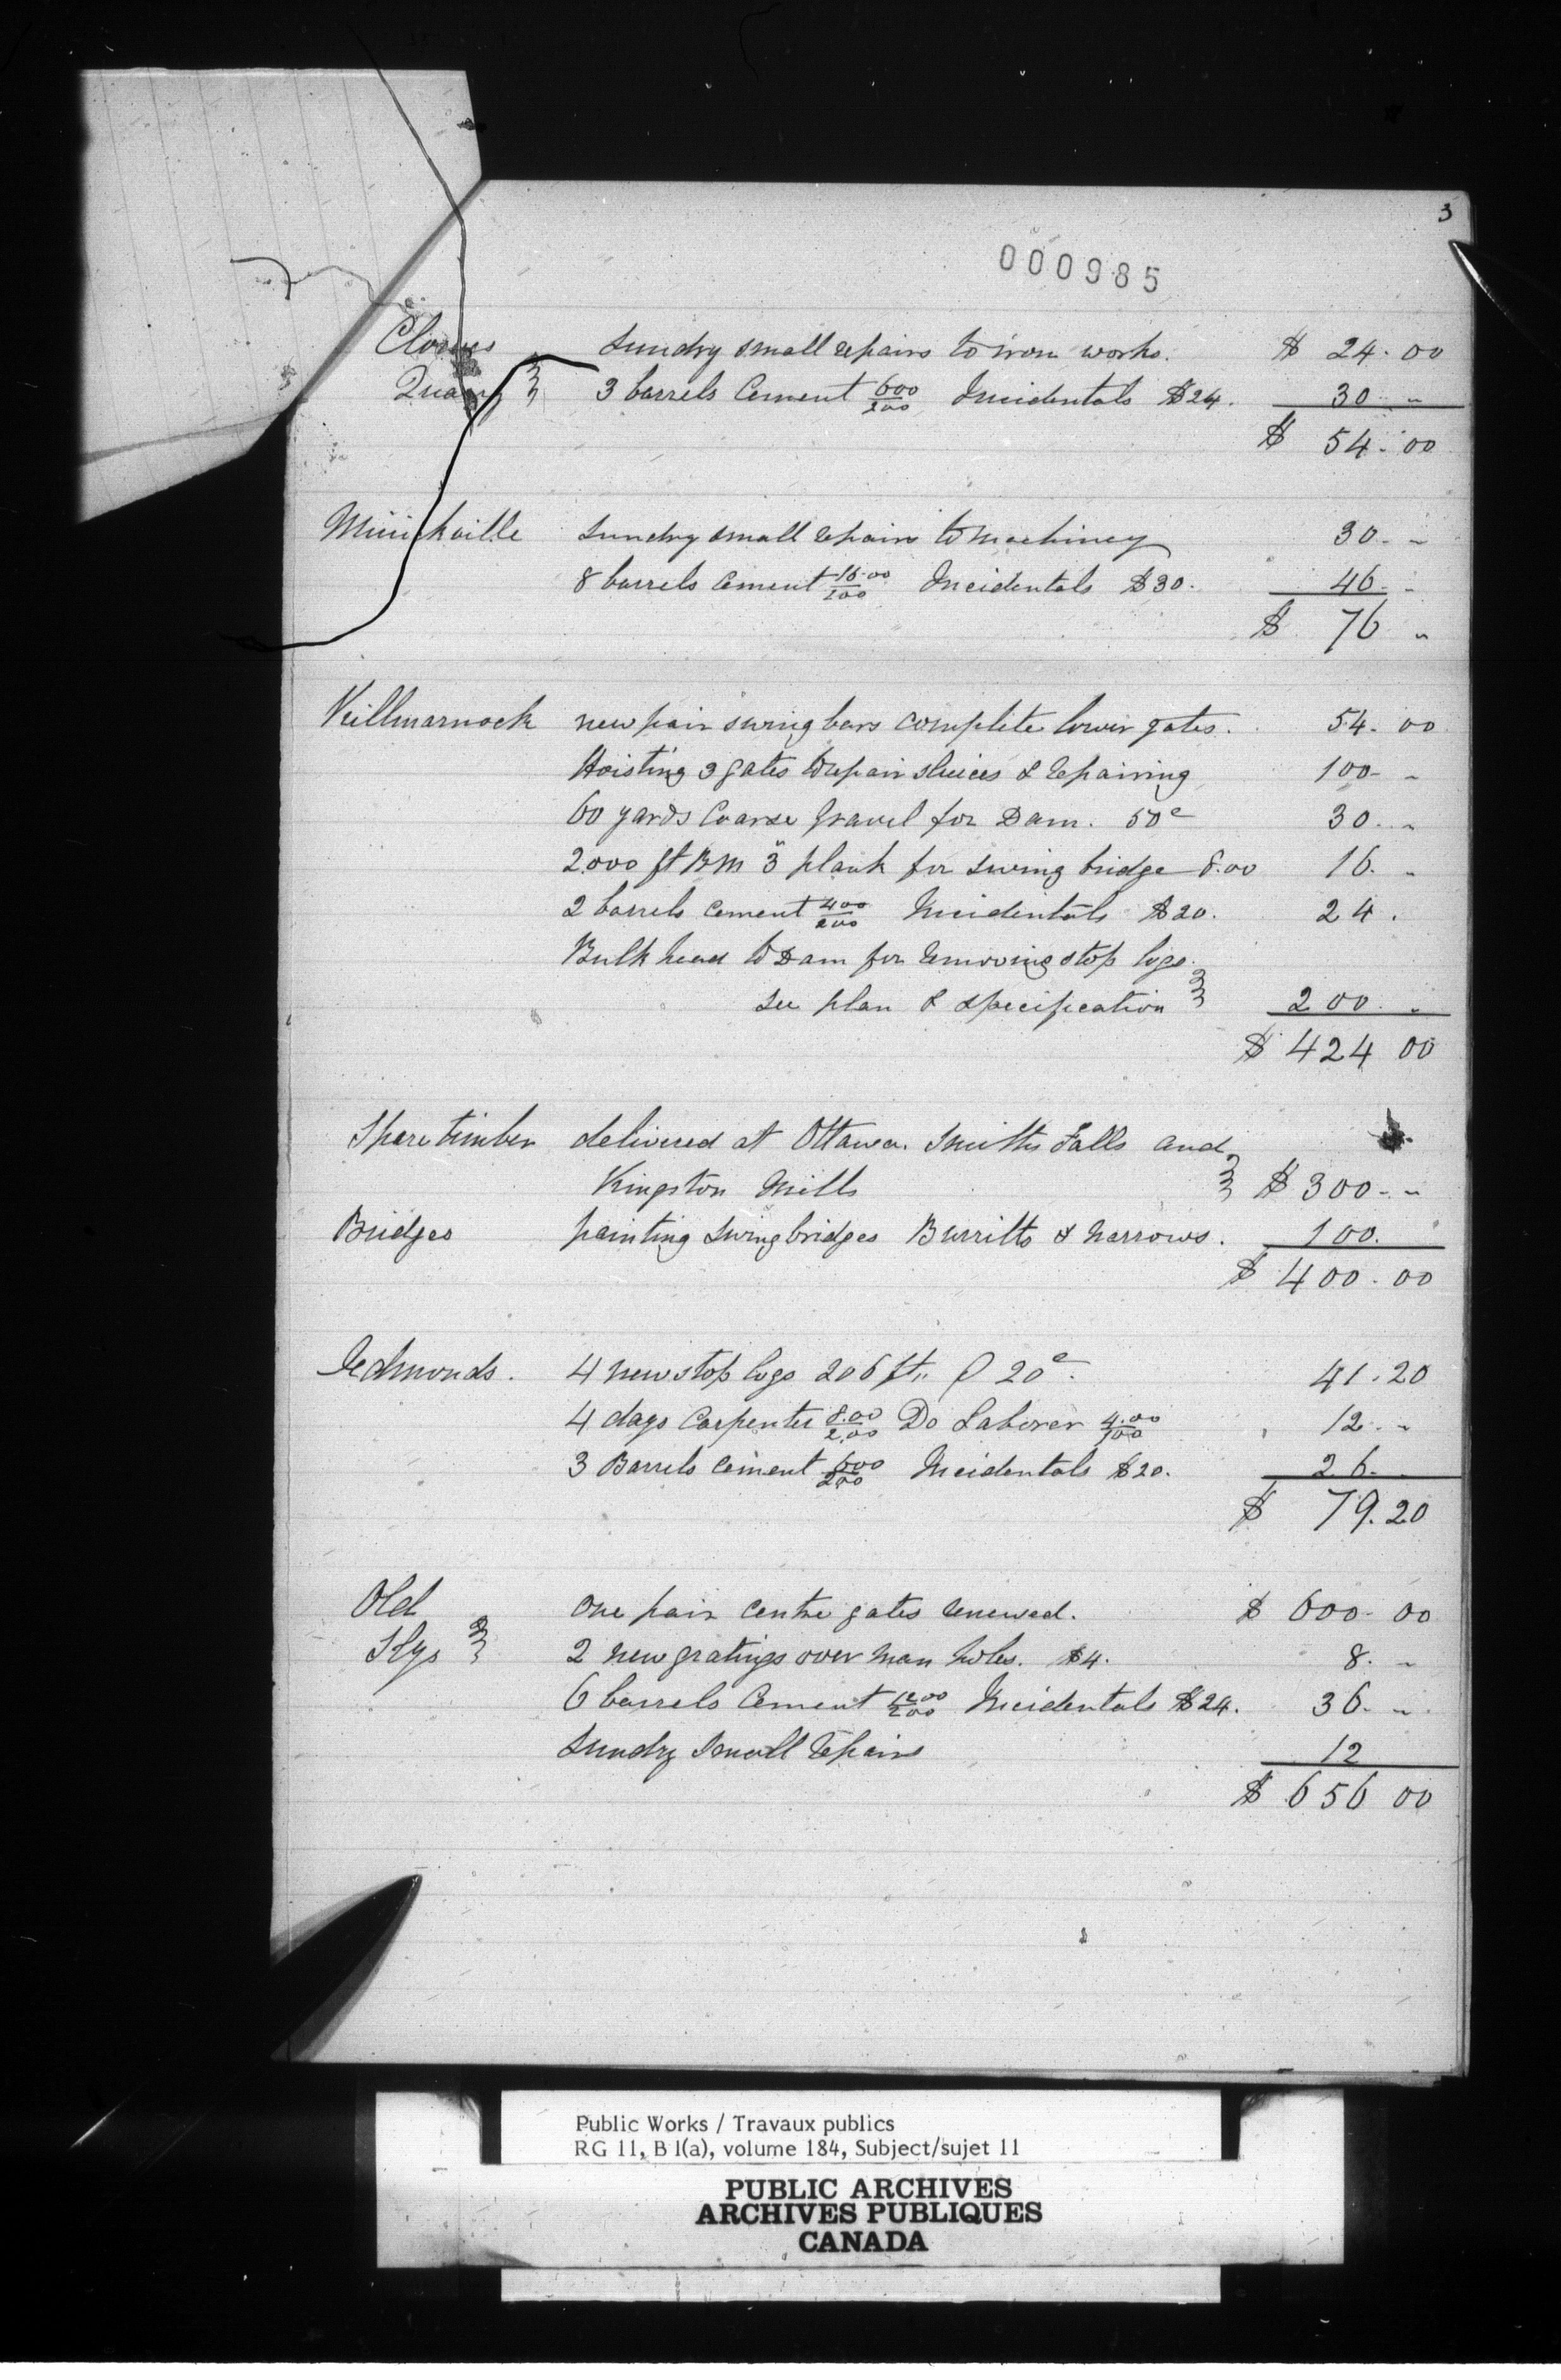 3
000985
Clowes Sundry small repairs to iron works. $ 24. 00
Quarry 3 barrels Cement 600/200 Incidentals $24. 30 "
$ 54. 00
Mirickville Sundry small repairs to machinery 30. "
8 barrels Cement 16.00/200 Incidentals $30. 46. "
$ 76 "
Killmarnock new pair swing bars complete lower gates. 54. 00
Hoisting 3 gates to repair sluices & repairing 100 "
60 yards Coarse Gravel for Dam. 50c 30. "
2.000 ft BM 3" plank for swing bridge 8.00 16. "
2 barrels Cement 400/200 Incidentals $20. 24.
Bulk head to Dam for removing stop logs.
See plan & specification 200. "
$ 424 00
Spare timber delivered at Ottawa. Smiths Falls and
Kingston Mills $ 300. "
Bridges painting swing bridges Burritts & Narrows. 100.
$ 400. 00
Edmonds. 4 new stop logs 206 ft" @ 20c. 41.20
4 days Carpenter 8.00/2.00 Do Laborer 4.00/100 12. "
3 Barrels Cement 600/200 Incidentals $20. 26.
$ 79.20
Old One pair centre gates renewed. $ 600. 00
Slys 2 new gratings over man holes. $4. 8. "
6 barrels Cement 12.00/200 Incidentals $24. 36. "
Sundry Small repairs 12
$ 656 00
Public Works / Travaux publics
RG 11, B 1(a), volume 184, Subject/sujet 11
PUBLIC ARCHIVES
ARCHIVES PUBLIQUES
CANADA